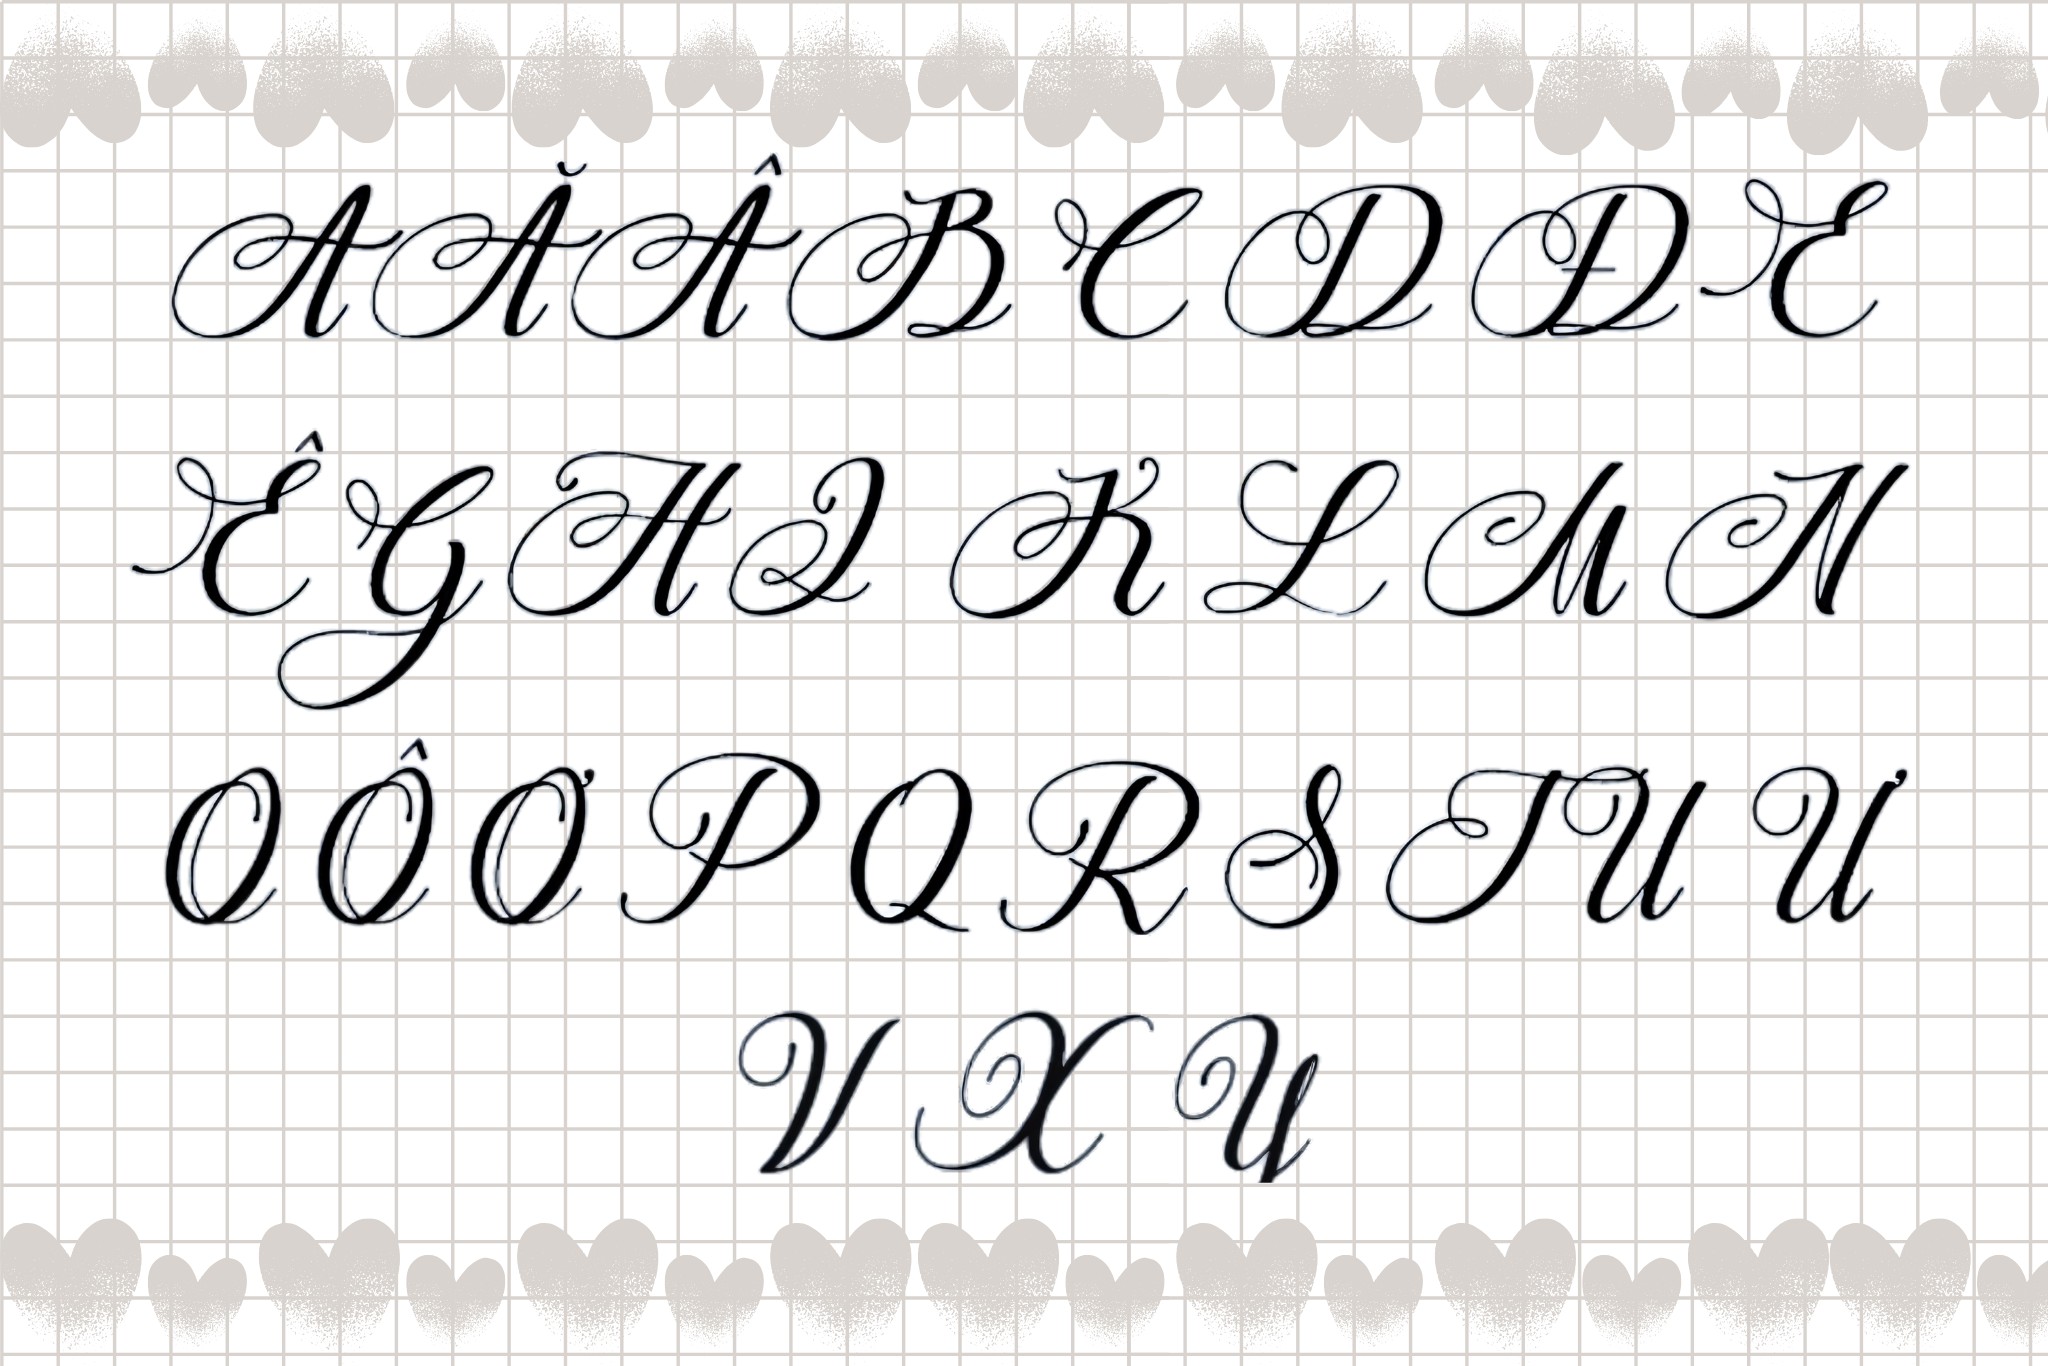 A Ă Â B C D Đ E
Ê G H I K L M N
O Ô Ơ P Q R S T U Ư
V X Y